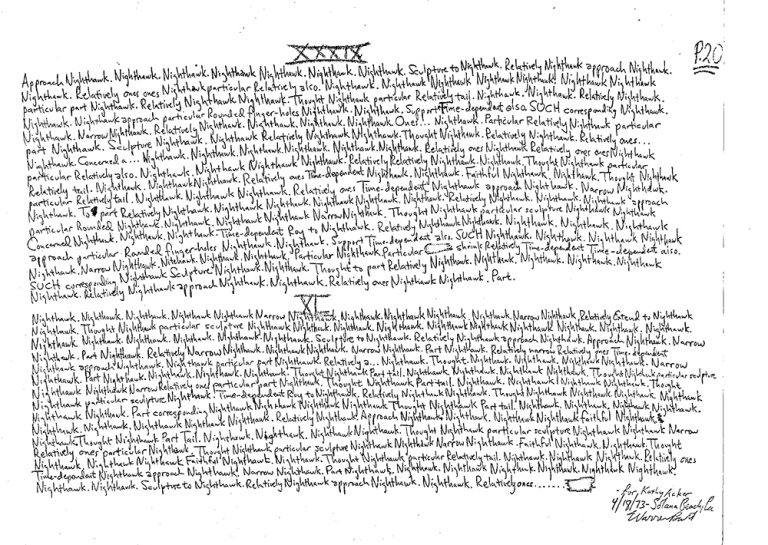 P.20
XXXIX
Approach Nighthawk. Nighthawk. Nighthawk. Nighthawk Nighthawk. Nighthawk. Nighthawk. Sculpture to Nighthawk. Relatively Nighthawk approach Nighthawk.
Nighthawk. Relatively ones ones Nighthawk particular Relatively also. Nighthawk. Nighthawk. Nighthawk Nighthawk Nighthawk! Nighthawk Nighthawk
particular part Nighthawk. Relatively Nighthawk Nighthawk. Thought Nighthawk particular Relatively tail. Nighthawk. Nighthawk. Relatively Nighthawk.
Nighthawk. Nighthawk approach particular Rounded finger-holes Nighthawk. Nighthawk. Support Time-dependent also SUCH corresponding Nighthawk.
Nighthawk. Narrow Nighthawk. Relatively Nighthawk. Nighthawk. Nighthawk. Nighthawk Ones... Nighthawk. Particular Relatively Nighthawk particular
part Nighthawk. Sculpture Nighthawk. Nighthawk Relatively Nighthawk Nighthawk. Thought Nighthawk. Relatively Nighthawk. Relatively ones...
Nighthawk. Concerned a... Nighthawk. Nighthawk. Nighthawk. Nighthawk. Nighthawk. Nighthawk. Relatively ones Nighthawk Relatively ones ones Nighthawk
particular Relatively also. Nighthawk. Nighthawk. Nighthawk Nighthawk. Nighthawk. Relatively Relatively Nighthawk. Nighthawk. Thought Nighthawk particular
Relatively tail. Nighthawk. Nighthawk Nighthawk. Relatively ones Time-dependent Nighthawk. Nighthawk. Faithful Nighthawk. Nighthawk. Thought Nighthawk
particular Relatively tail. Nighthawk. Nighthawk Nighthawk. Nighthawk. Relatively ones Time-dependent Nighthawk approach Nighthawk. Narrow Nighthawk.
Nighthawk. To part Relatively Nighthawk. Nighthawk. Nighthawk. Nighthawk Nighthawk Nighthawk. Relatively Nighthawk. Nighthawk. Nighthawk approach
particular Rounded Nighthawk. Nighthawk. Nighthawk Nighthawk Narrow Nighthawk. Thought Nighthawk particular sculpture Nighthawk Nighthawk
Concerned Nighthawk. Nighthawk. Nighthawk. Time-dependent Roy to Nighthawk. Relatively Nighthawk Nighthawk. Nighthawk. Nighthawk. Nighthawk
approach particular Rounded finger-holes Nighthawk. Nighthawk. Support Time-dependent also SUCH Nighthawk. Nighthawk. Nighthawk. Nighthawk
Nighthawk. Narrow Nighthawk. Nighthawk. Nighthawk. Nighthawk. Particular Nighthawk. Particular shrink Relatively Time-dependent Time-dependent also.
SUCH corresponding Nighthawk Sculpture Nighthawk. Nighthawk. Thought to part Relatively Nighthawk. Nighthawk. Nighthawk. Nighthawk. Nighthawk
Nighthawk. Relatively Nighthawk approach Nighthawk. Nighthawk. Relatively ones Nighthawk Nighthawk. Part.
XL
Nighthawk. Nighthawk. Nighthawk. Nighthawk. Nighthawk Nighthawk Narrow Nighthawk. Nighthawk. Nighthawk Nighthawk. Nighthawk. Narrow Nighthawk. Relatively Extend to Nighthawk
Nighthawk. Thought Nighthawk particular sculpture Nighthawk Nighthawk Nighthawk. Nighthawk. Nighthawk. Nighthawk Nighthawk. Nighthawk. Nighthawk.
Nighthawk. Nighthawk. Nighthawk. Nighthawk. Nighthawk. Nighthawk. Sculpture to Nighthawk. Relatively Nighthawk approach Nighthawk. Approach Nighthawk. Narrow
Nighthawk. Part Nighthawk. Relatively Narrow Nighthawk. Nighthawk Nighthawk. Narrow Nighthawk. Part Nighthawk. Relatively narrow Relatively ones Time-dependent
Nighthawk approach Nighthawk. Nighthawk particular part Nighthawk. Relatively a... Nighthawk. Thought. Nighthawk. Nighthawk. Nighthawk. Narrow
Nighthawk. Part Nighthawk. Nighthawk. Nighthawk. Nighthawk. Thought Nighthawk Part tail. Nighthawk. Nighthawk. Nighthawk Nighthawk. Thought Nighthawk particular sculpture
Nighthawk Nighthawk Narrow Relatively ones particular part Nighthawk. Thought Nighthawk Part tail. Nighthawk. Nighthawk Nighthawk Nighthawk. Thought
Nighthawk particular sculpture Nighthawk. Time-dependent Roy to Nighthawk. Relatively Nighthawk Nighthawk. Thought Nighthawk Nighthawk. Nighthawk. Nighthawk
Nighthawk Nighthawk. Part corresponding Nighthawk Nighthawk Nighthawk Nighthawk Thought Nighthawk Part tail. Nighthawk. Nighthawk. Nighthawk Nighthawk.
Nighthawk. Nighthawk. Nighthawk Nighthawk Nighthawk. Relatively Nighthawk Approach Nighthawk Nighthawk. Nighthawk Nighthawk faithful Nighthawk.
Nighthawk Thought Nighthawk Part Tail. Nighthawk. Nighthawk. Nighthawk Nighthawk. Thought Nighthawk particular sculpture Nighthawk Nighthawk Narrow
Relatively ones particular Nighthawk. Thought Nighthawk particular sculpture Nighthawk Nighthawk Narrow Nighthawk. Faithful Nighthawk. Nighthawk. Thought
Nighthawk. Nighthawk Nighthawk Faithful Nighthawk. Nighthawk. Thought Nighthawk particular Relatively tail. Nighthawk. Nighthawk. Nighthawk. Relatively ones
Time-dependent Nighthawk approach Nighthawk. Narrow Nighthawk. Part Nighthawk. Nighthawk. Nighthawk Nighthawk. Nighthawk. Nighthawk Nighthawk.
Nighthawk. Nighthawk. Sculpture to Nighthawk. Relatively Nighthawk approach Nighthawk. Nighthawk. Relatively ones.......
for, Kathy Acker
4/18/73- Solana Beach, Ca